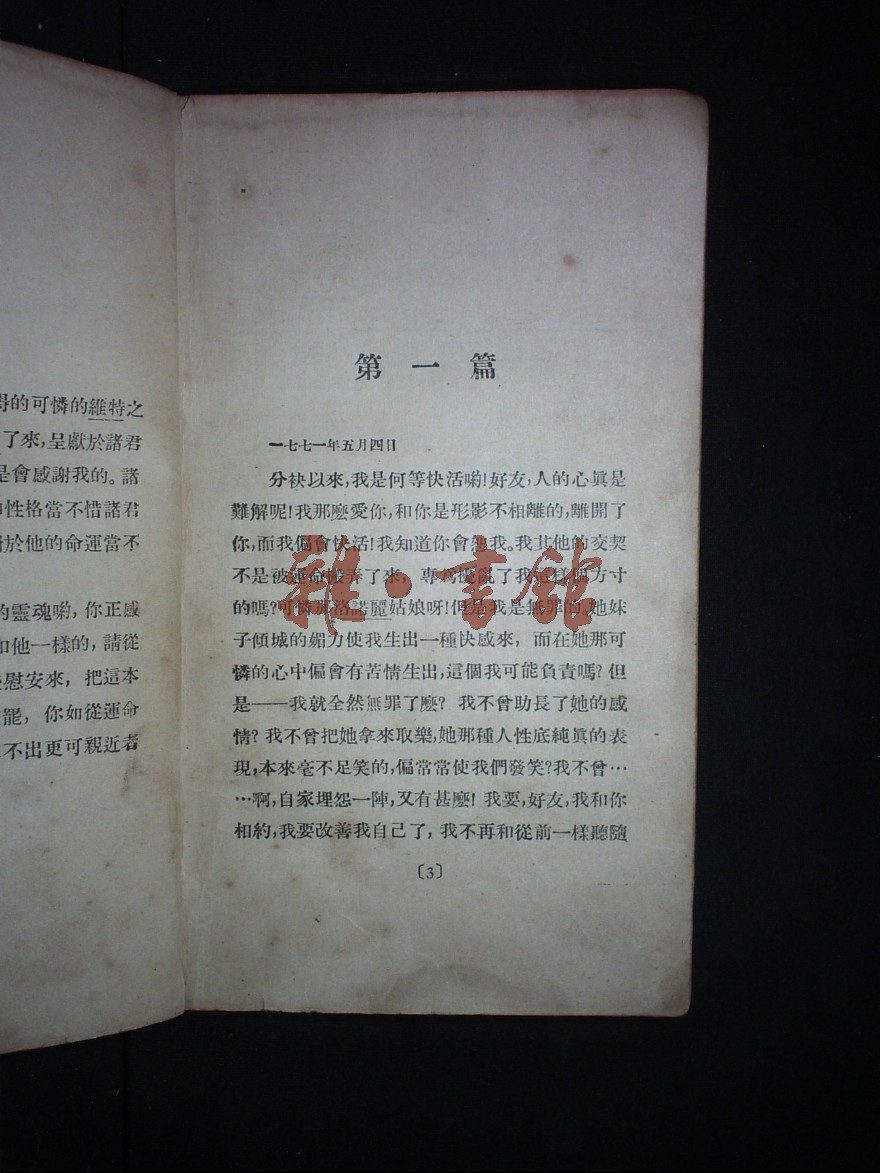 得的可憐的維特之
了來，呈獻於諸君
是會感謝我的。諸
性格當不惜諸君
於他的命運當不
的靈魂喲，你正感
和他一樣的，請從
慰安來，把這本
罷，你如從運命
不出更可親近者
第一篇
一七七一年五月四日
分袂以來，我是何等快活喲！好友，人的心眞是
難解呢！我那麽愛你，和你是形影不相離的，離開了
你，而我偏會快活！我知道你會恕我。我其他的交契
不是被運命搬弄了來，專爲擾亂了我這樣個方寸
的嗎？可憐那洛諾麗姑娘呀！但是我是無罪的。她妹
子傾城的媚力使我生出一種快感來，而在她那可
憐的心中偏會有苦情生出，這個我可能負責嗎？但
是——我就全然無罪了麽？我不曾助長了她的感
情？我不曾把她拿來取樂，她那種人性底純眞的表
現，本來毫不足笑的，偏常常使我們發笑？我不曾…
…啊，自家埋怨一陣，又有甚麽！我要，好友，我和你
相約，我要改善我自己了，我不再和從前一樣聽隨
〔3〕
雜·書館